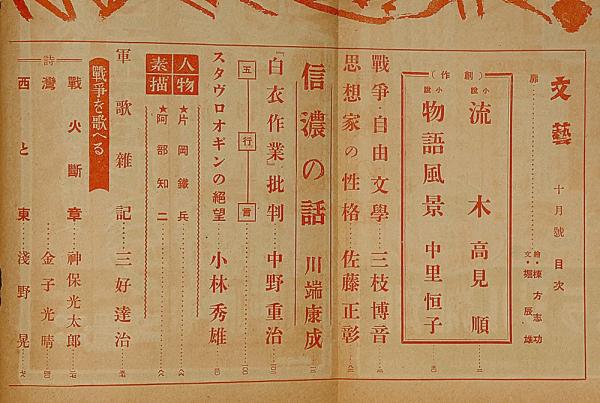 文藝 十月號 目次
扉
繪・棟方志功
文・堀辰雄
(創作)
小說 流木 高見順
小說 物語風景 中里恒子
戰爭・自由文學 三枝博音
思想家の性格 佐藤正彰
信濃の話 川端康成
『白衣作業』批判 中野重治
五行言
スタヴロオギンの絕望 小林秀雄
人物素描
★片岡鐵兵
★阿部知二
軍歌雜記 三好達治
戰爭を歌へる
詩
戰火斷章 神保光太郎
灣 金子光晴
西と東 淺野晃